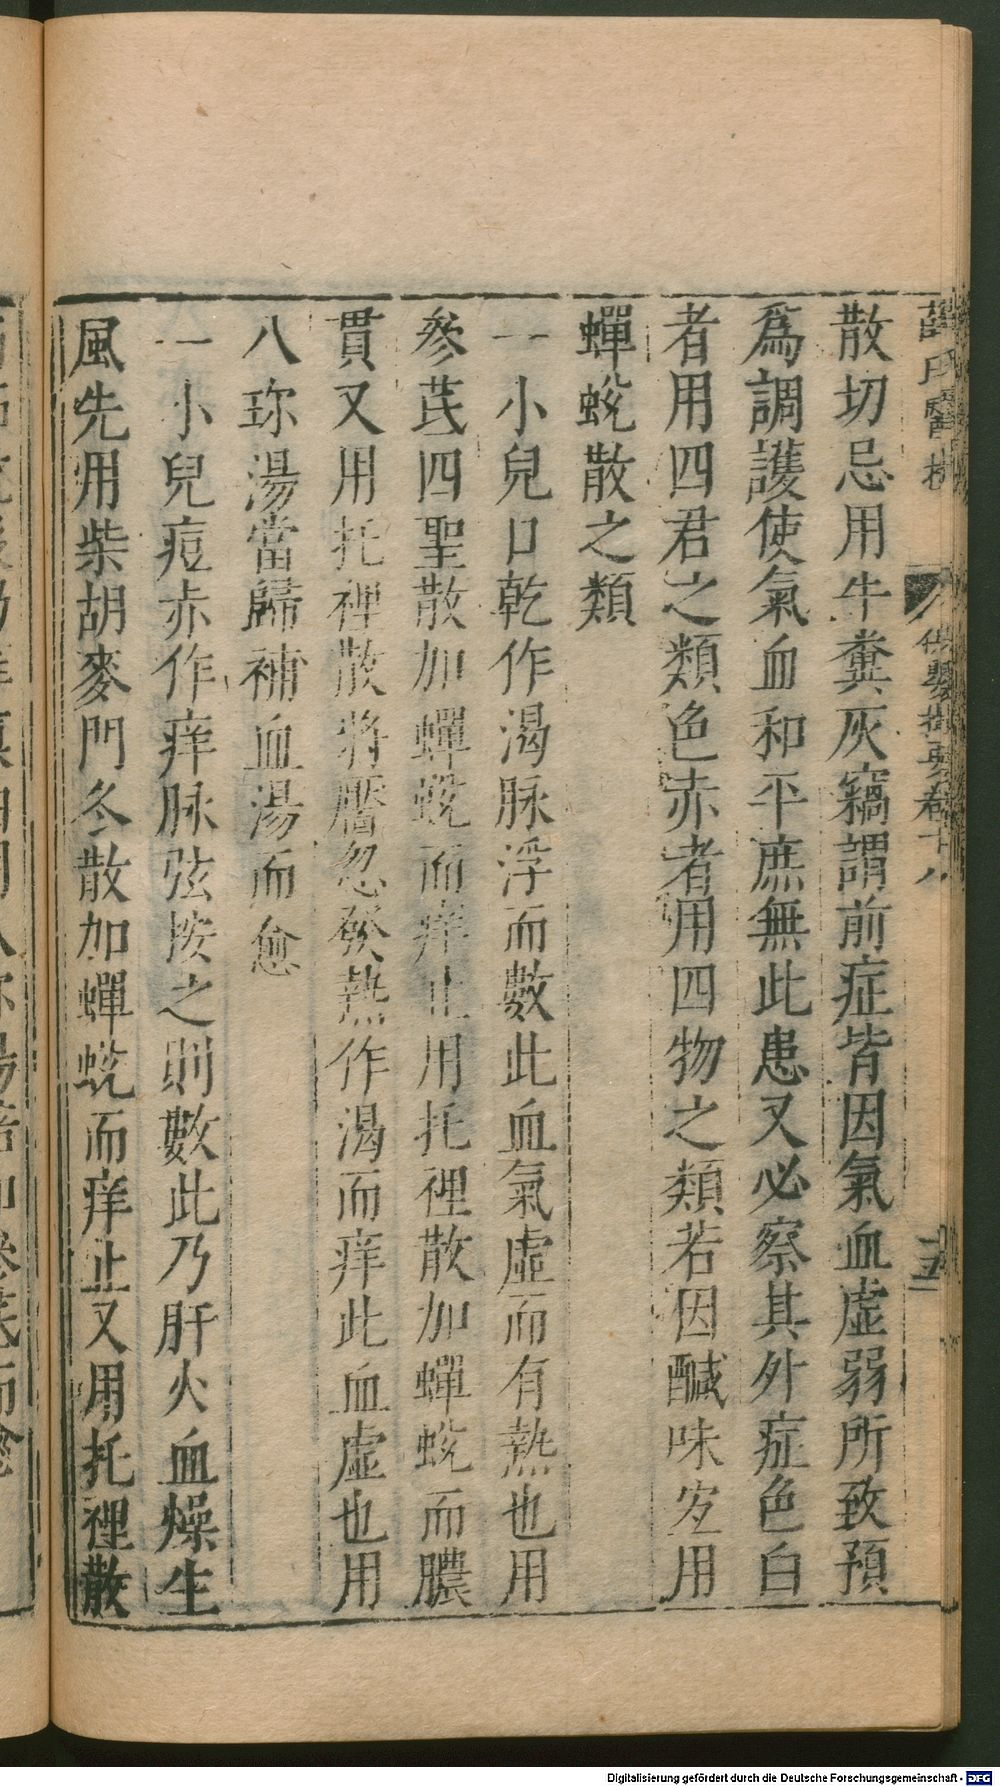 薛氏醫按 保嬰撮要卷十八 十五
散切忌用牛糞灰竊謂前症皆因氣血虛弱所致預
爲調護使氣血和平庶無此患又必察其外症色白
者用四君之類色赤者用四物之類若因醎味㱔用
蟬蛻散之類
一小兒口乾作渴脉浮而數此血氣虛而有熱也用
參芪四聖散加蟬蛻而痒止用托裡散加蟬蛻而膿
貫又用托裡散將靨忽發熱作渴而痒此血虛也用
八珎湯當歸補血湯而愈
一小兒痘赤作痒脉弦按之則數此乃肝火血燥生
風先用柴胡麥門冬散加蟬蛻而痒止又用托裡散
Digitalisierung gefördert durch die Deutsche Forschungsgemeinschaft - DFG